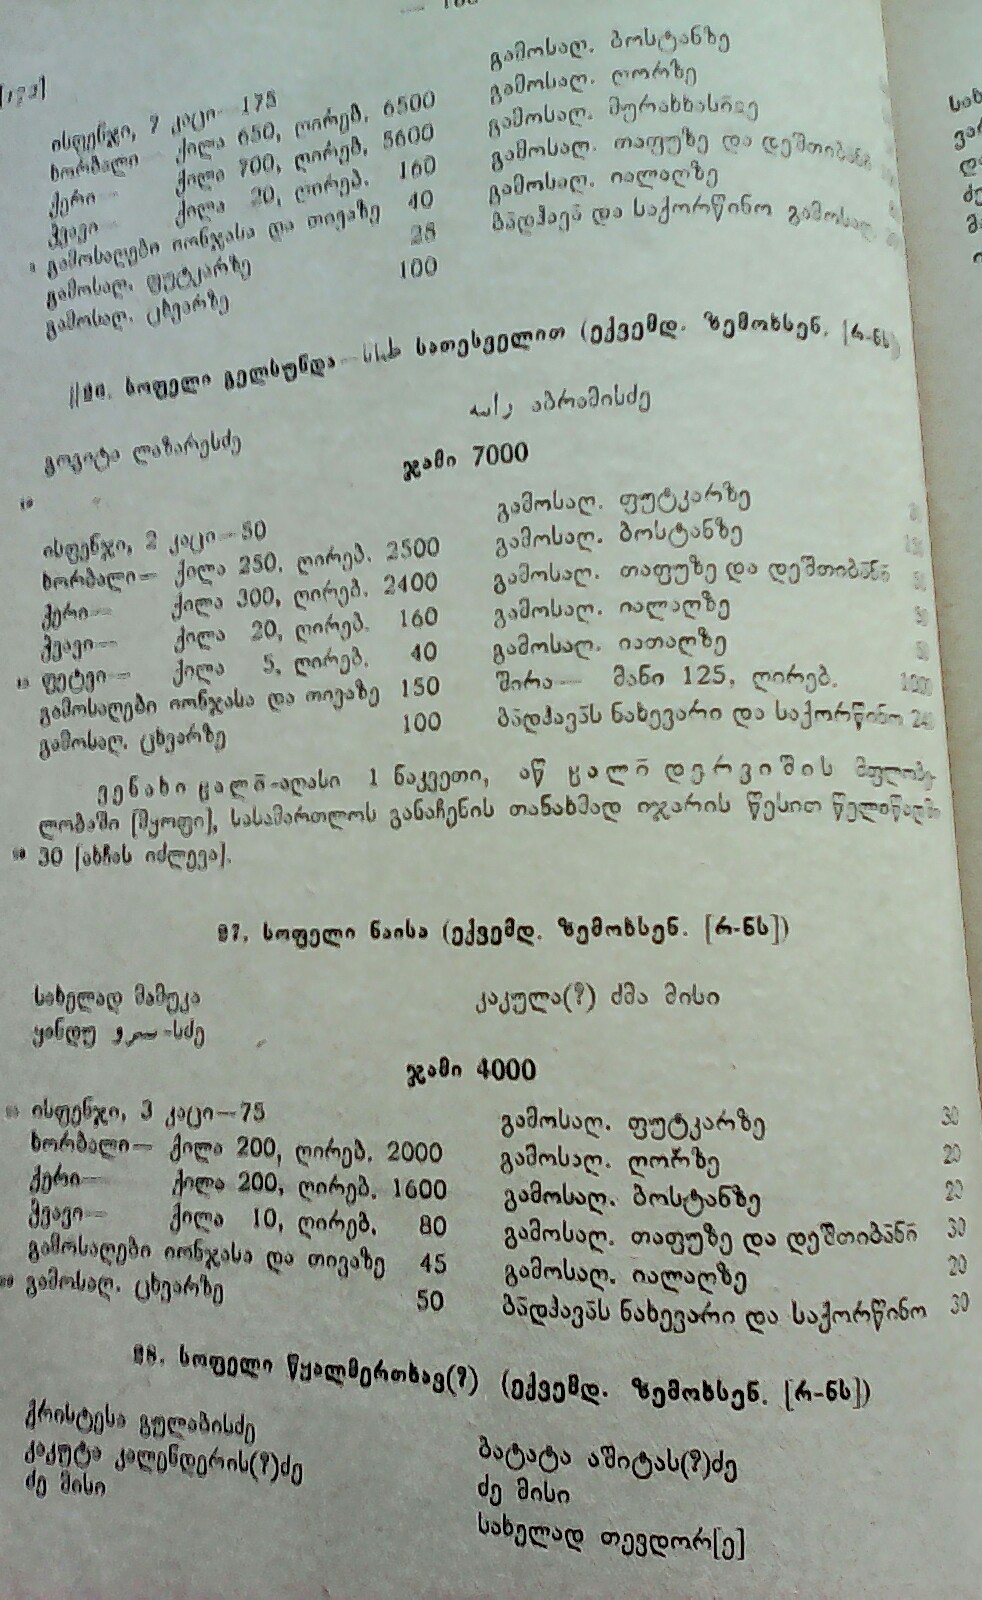 ისფენჯი, 7 კაცი— 175
ხორბალი— ქილა 650, ღირებ. 6500
ქერი— ქილა 700, ღირებ. 5600
ჭვავი— ქილა 20, ღირებ. 160
გამოსაღები იონჯასა და თივაზე 40
გამოსაღ. ფუტკარზე 25
გამოსაღ. ცხვარზე 100
გამოსაღ. ბოსტანზე
გამოსაღ. ღორზე
გამოსაღ. მურახხასიიე
გამოსაღ. თაფუზე და დეშთიბან
გამოსაღ. იალაღზე
ბადჰავა და საქორწინო გამოსაღ.
სოფელი გელსუნდა სათესველით (ექვემდ. ზემოხსენ. [რ-ნს])
გოგიტა ლაზარესძე
აბრამისძე
ჯამი 7000
ისფენჯი, 2 კაცი—50
ხორბალი— ქილა 250, ღირებ. 2500
ქერი— ქილა 300, ღირებ. 2400
ჭვავი— ქილა 20, ღირებ. 160
ფეტვი— ქილა 5, ღირებ. 40
გამოსაღები იონჯასა და თივაზე 150
გამოსაღ. ცხვარზე 100
გამოსაღ. ფუტკარზე
გამოსაღ. ბოსტანზე
გამოსაღ. თაფუზე და დეშთიბანი
გამოსაღ. იალაღზე
გამოსაღ. იათაღზე
შირა— მანი 125, ღირებ. 1000
ბადჰავას ნახევარი და საქორწინო
ვენახი ცალო-აღასი 1 ნაკვეთი, აწ ცალო დერვიშის მფლობე-
ლობაში [მყოფი], სასამართლოს განაჩენის თანახმად იჯარის წესით წელიწადში
30 [ახჩას იძლევა].
სოფელი ნაისა (ექვემდ. ზემოხსენ. [რ-ნს])
სახელად მამუკა
ყანდუ -სძე
კაკულა(?) ძმა მისი
ჯამი 4000
ისფენჯი, 3 კაცი—75
ხორბალი— ქილა 200, ღირებ. 2000
ქერი— ქილა 200, ღირებ. 1600
ჭვავი— ქილა 10, ღირებ. 80
გამოსაღები იონჯასა და თივაზე 45
გამოსაღ. ცხვარზე 50
გამოსაღ. ფუტკარზე 30
გამოსაღ. ღორზე 20
გამოსაღ. ბოსტანზე 20
გამოსაღ. თაფუზე და დეშთიბანი 30
გამოსაღ. იალაღზე 20
ბადჰავას ნახევარი და საქორწინო 30
სოფელი წყალმერთხავ(?) (ექვემდ. ზემოხსენ. [რ-ნს])
ქრისტესა გულაბისძე
კაკუტა კალენდერის(?)ძე
ძე მისი
ბატატა აშიტას(?)ძე
ძე მისი
სახელად თევდორ[ე]